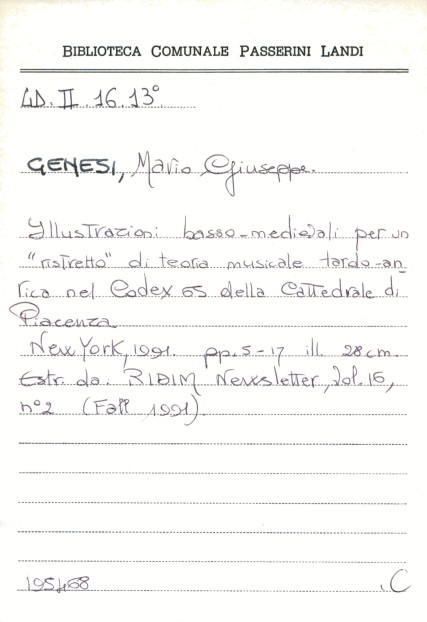 BIBLIOTECA COMUNALE PASSERINI LANDI
4D. II 16. 13°
GENESI, Mario Giuseppe.
Yllustrazioni basso-medievali per un
"ristretto" di teoria musicale tardo-an
tica nel Codex 65 della Cattedrale di
Piacenza
New York, 1991. pp. 5-17 ill. 28 cm.
Estr. da: RIDIM Newsletter, Vol. 16,
n°2 (Fall 1991)
195468
C